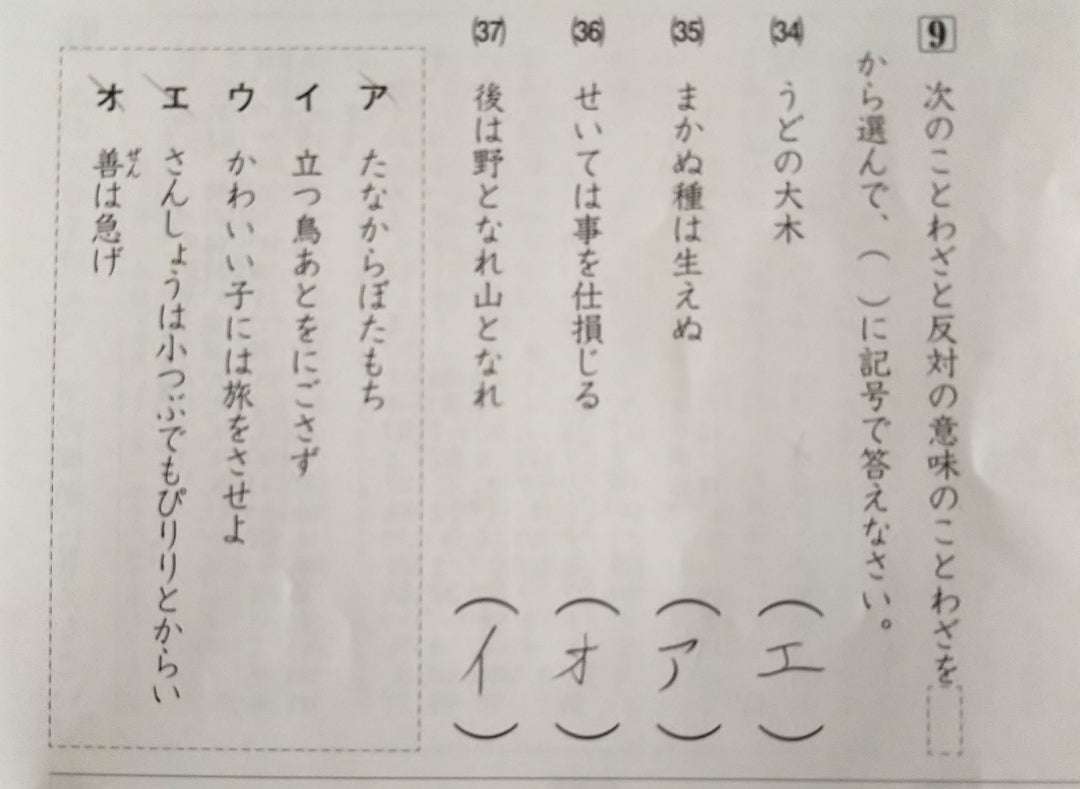 9 次のことわざと反対の意味のことわざを
から選んで、（ ）に記号で答えなさい。
(34) うどの大木 （エ）
(35) まかぬ種は生えぬ （ア）
(36) せいては事を仕損じる （オ）
(37) 後は野となれ山となれ （イ）
ア たなからぼたもち
イ 立つ鳥あとをにごさず
ウ かわいい子には旅をさせよ
エ さんしょうは小つぶでもぴりりとからい
ぜん
オ 善は急げ